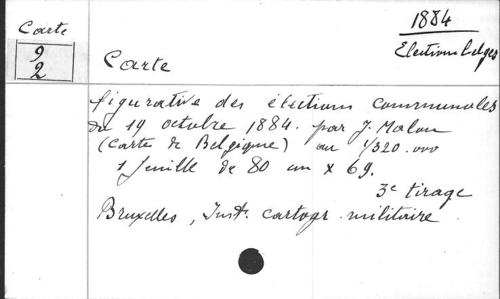 Carte
9
2
1884
Elections belges
Carte
figurative des élections communales
du 19 octobre 1884. par J. Malou
(Carte de Belgique) au 1/320.000
1 feuille de 80 cm x 69.
3e tirage
Bruxelles, Inst. cartogr. militaire